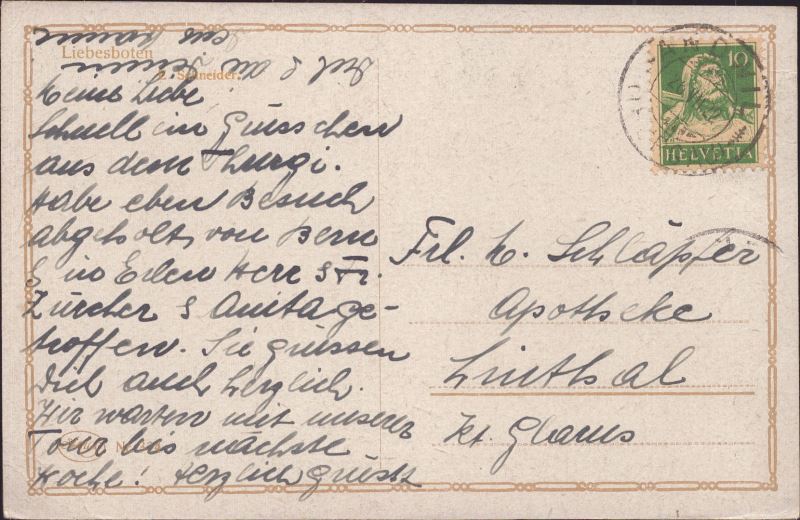 Liebesboten
Schneider
Meine Liebe!
Schnell ein Grüsschen
aus dem Thurgi.
Habe eben Besuch
abgeholt, von Bern
& in Erlen Herr & Fr.
Zürcher & Anita ge-
troffen. Sie grüssen
Dich auch herzlich.
Wir warten mit unserer
Tour bis nächste
Woche! Herzlich grüsst
Dich & die Deinen
10
HELVETIA
Frl. M. Schläpfer
Apotheke
Linthal
Kt. Glarus